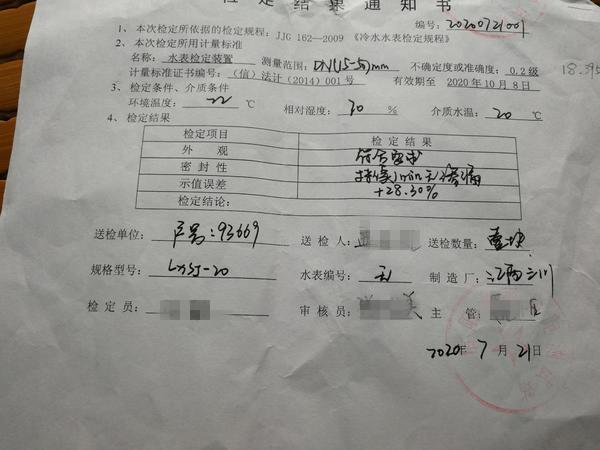 检定结果通知书
编号：2020721001
1、本次检定所依据的检定规程：JJG 162—2009 《冷水水表检定规程》
2、本次检定所用计量标准
名称：水表检定装置 测量范围：DN(15-50)mm 不确定度或准确度：0.2级
计量标准证书编号：（信）法计（2014）001号 有效期至 2020年10月8日
3、检定条件、介质条件
环境温度：22 ℃ 相对湿度：70 % 介质水温：20 ℃
4、检定结果
检定项目 检定结果
外观 符合要求
密封性 持续1min无渗漏
示值误差 +28.30%
检定结论：
送检单位：户号：93669 送检人： 送检数量：壹块
规格型号：LXSJ-20 水表编号：无 制造厂：江西三川
检定员： 审核员： 主管：
2020年7月21日